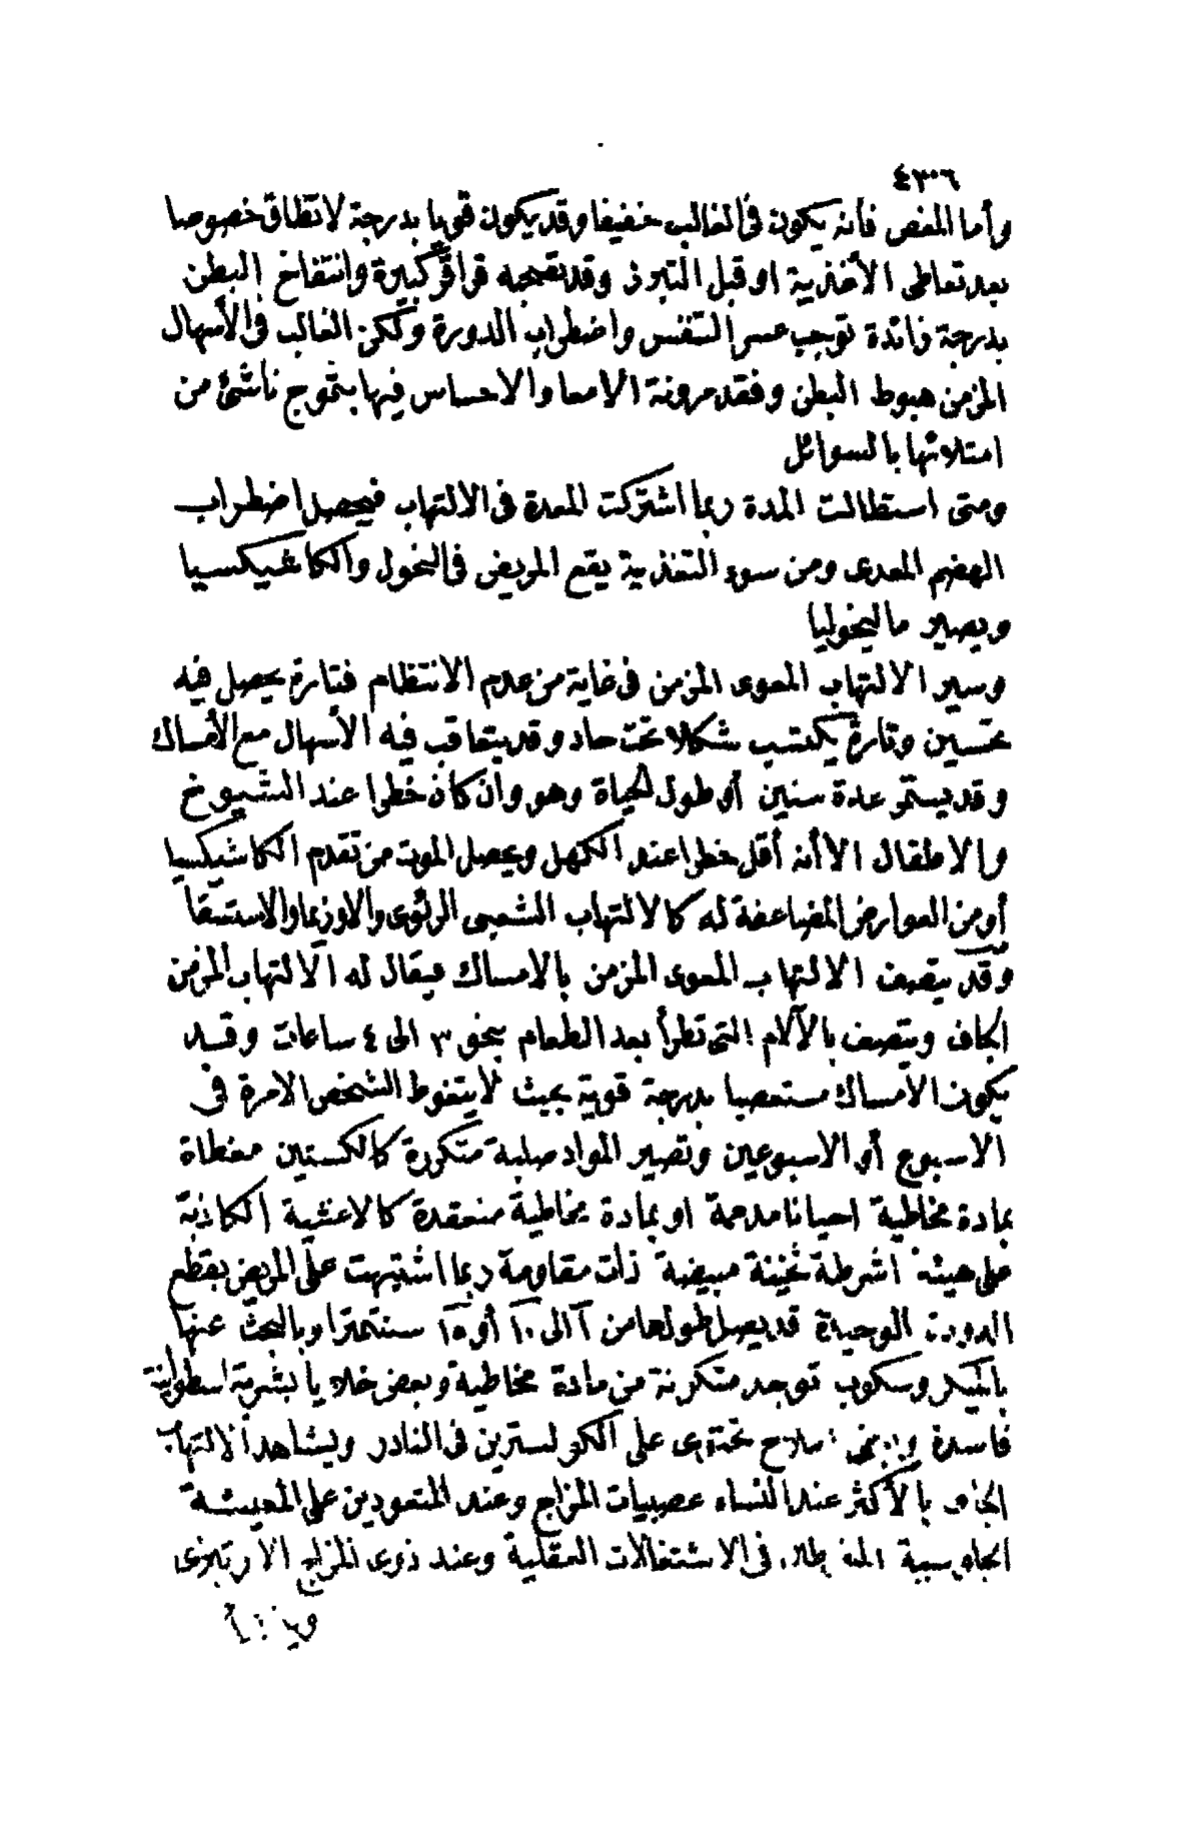 ٤٣٠٦
وأما المغص فأنه يكون فى الغالب خفيفا وقد يكون قويا بدرجة لا تطاق خصوصا
بعد تعاطى الأغذية او قبل التبرز وقد تصحبه قراقر كبيرة وانتفاخ البطن
بدرجة زائدة توجب عسر التنفس واضطراب الدورة ولكن الغالب فى الأسهال
المزمن هبوط البطن وفقد مرونة الامعا والاحساس فيها بتموج ناشئ من
امتلائها بالسوائل
ومتى استطالت المدة ربما اشتركت المعدة فى الالتهاب فيحصل اضطراب
الهضم المعدى ومن سوء التغذية يقع المريض فى النحول والكاشيكسيا
ويصير ماليخوليا
وسير الالتهاب المعوى المزمن فى غاية من عدم الانتظام فتارة يحصل فيه
تحسين وتارة يكتسب شكلا تحت حاد وقد يتعاقب فيه الأسهال مع الأمساك
وقد يستمر عدة سنين أو طول الحياة وهو وان كان خطرا عند الشيوخ
والاطفال الا أنه أقل خطرا عند الكهل ويحصل الموت من تقدم الكاشيكسيا
أو من العوارض المضاعفة له كالالتهاب الشعبى الرئوى والاوزيما والاستسقا
وقد يتصف الالتهاب المعوى المزمن بالامساك فيقال له الالتهاب المزمن
الجاف ويتصف بالآلام التى تطرأ بعد الطعام بنحو ٣ الى ٤ ساعات وقد
يكون الأمساك مستعصيا بدرجة قوية بحيث لا يتغوط الشخص الا مرة فى
الاسبوع أو الاسبوعين وتصير المواد صلبة متكررة كالكستين مغطاة
بمادة مخاطية احيانا مدممة او بمادة مخاطية منعقدة كالاغشية الكاذبة
على هيئة اشرطة ثخينة مبيضة ذات مقاومة ربما اشتبهت على المريض بقطع
الدودة الوحيدة قد يصل طولها من ٦ الى ١٠ أو ١٥ سنتمترا وبالبحث عنها
بالميكروسكوب توجد متكونة من مادة مخاطية وبعض خلايا بشرية اسطوانية
فاسدة وبعض املاح تحتوى على الكولسترين فى النادر ويشاهد الالتهاب
الجاف بالأكثر عند النساء عصبيات المزاج وعند المتعودين على المعيشة
الجلوسية فى الاشتغالات العقلية وعند ذوى المزاج الارتيزى